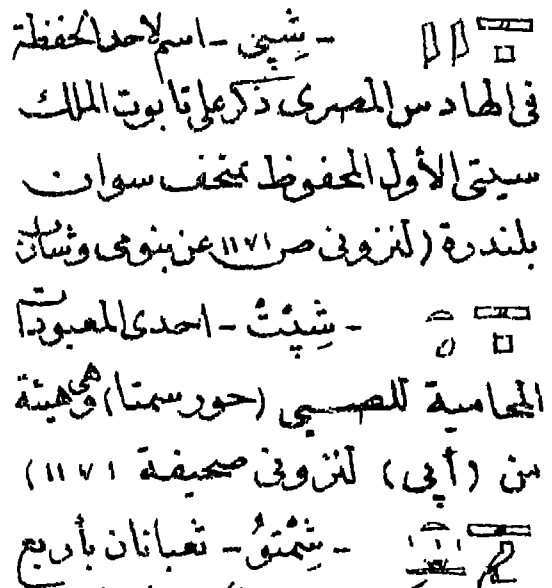 - شِپِي - اسم لاحد الحفظة
فى الهادس المصرى ذكر على تابوت الملك
سيتى الأول المحفوظ بمتحف سوان
بلندرة (لنزونى ص ١١٧١ عن بنومى وشارب
- شِپِتْ - احدى المعبودات
المحامية للصبى (حورسمتا) وهى هيئة
من (أپى) لنزونى صحيفة ١١٧١)
- شِمْتِوُ - ثعبانان بأربع